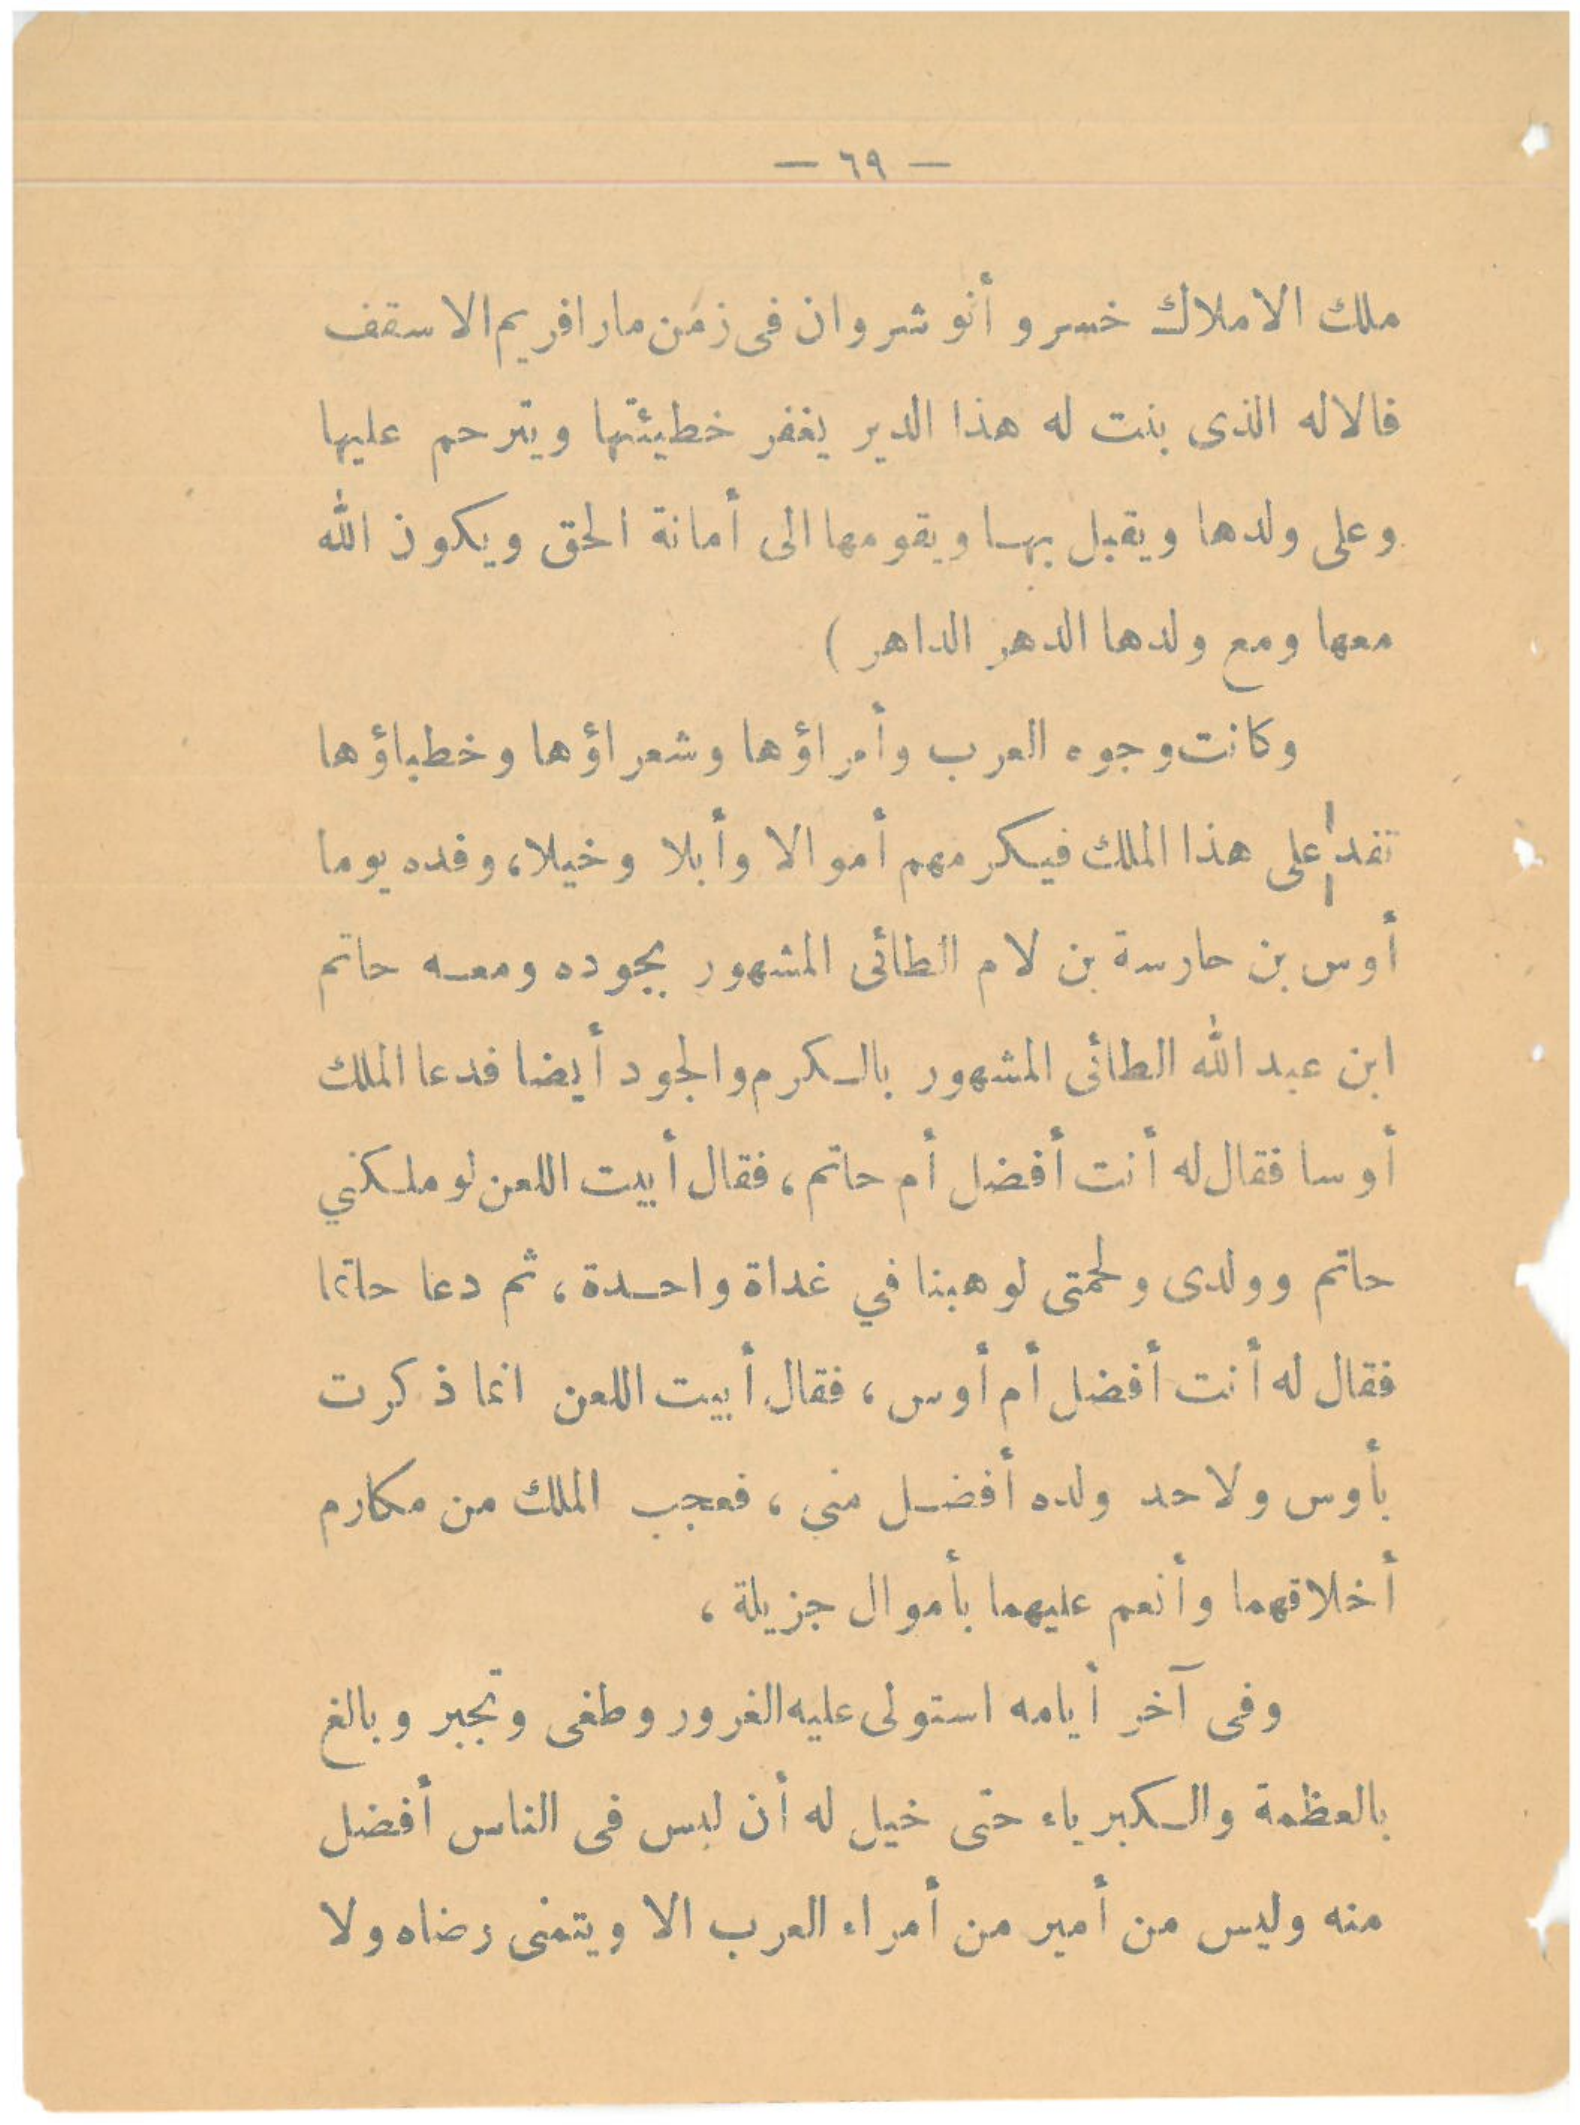 — ٦٩ —
ملك الاملاك خسرو أنوشروان فى زمن مار افريم الاسقف
فالاله الذى بنت له هذا الدير يغفر خطيئتها ويترحم عليها
وعلى ولدها ويقبل بها ويقومها الى أمانة الحق ويكون الله
معها ومع ولدها الدهر الداهر )
وكانت وجوه العرب وأمراؤها وشعراؤها وخطباؤها
تفد على هذا الملك فيكرمهم أموالا وأبلا وخيلا، وفده يوما
أوس بن حارسة بن لام الطائى المشهور بجوده ومعه حاتم
ابن عبد الله الطائى المشهور بالكرم والجود أيضا فدعا الملك
أوسا فقال له أنت أفضل أم حاتم، فقال أبيت اللعن لو ملكني
حاتم وولدى ولحمتى لوهبنا في غداة واحدة، ثم دعا حاتما
فقال له أنت أفضل أم أوس، فقال أبيت اللعن انما ذكرت
بأوس ولاحد ولده أفضل مني، فعجب الملك من مكارم
أخلاقهما وأنعم عليهما بأموال جزيلة،
وفى آخر أيامه استولى عليه الغرور وطغى وتجبر وبالغ
بالعظمة والكبرياء حتى خيل له أن ليس فى الناس أفضل
منه وليس من أمير من أمراء العرب الا ويتمنى رضاه ولا